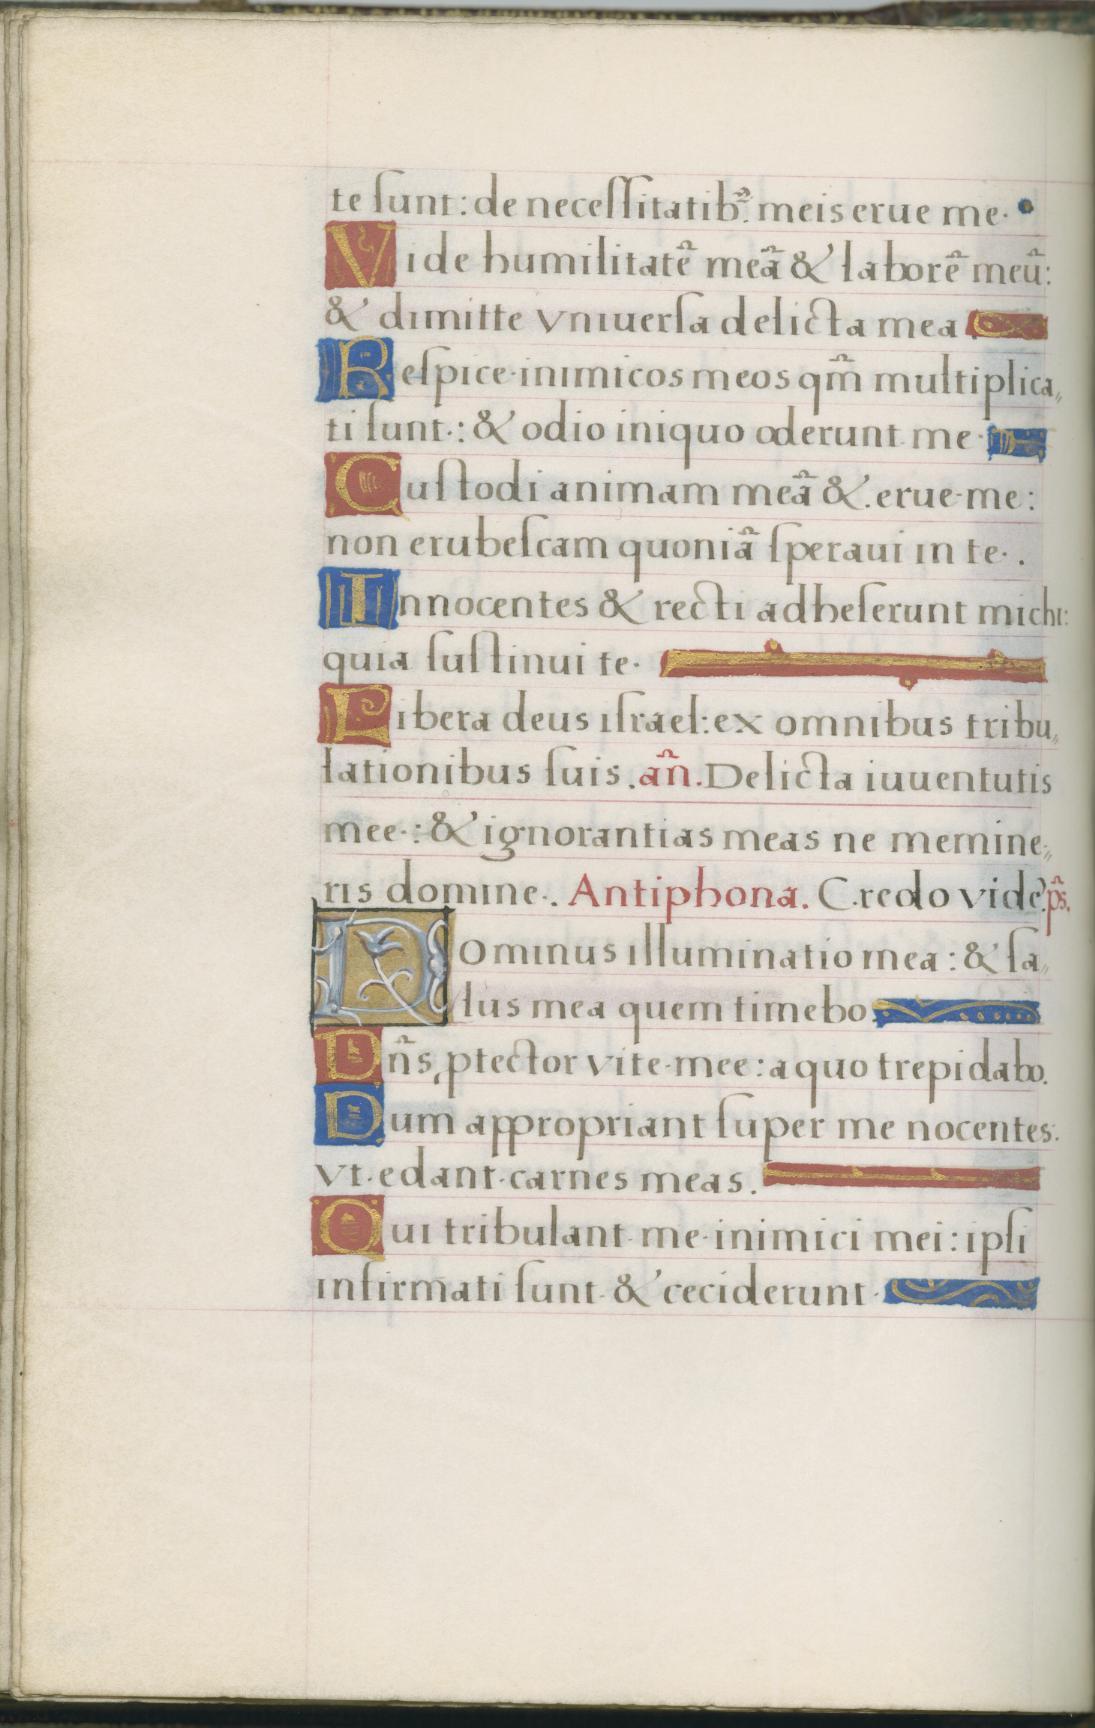 te ſunt: de neceſſitatibꝰ: meis erue me·
Vide humilitatẽ meã & laborẽ meũ:
& dimitte vniuerſa delicta mea.
Reſpice inimicos meos qm̃ multiplica„
ti ſunt·: & odio iniquo oderunt me·
Cuſtodi animam meã &. erue me:
non erubeſcam quoniã ſperaui in te·.
Innocentes & recti adheſerunt michi:
quia ſuſtinui te·
Libera deus iſrael: ex omnibus tribu„
lationibus ſuis. añ. Delicta iuuentutis
mee·: & ignorantias meas ne memine„
ris domine·. Antiphona. Credo vidẽ. ps̃.
Dominus illuminatio mea: & ſa„
lus mea quem timebo
Dñs ꝓtector vite mee: a quo trepidabo.
Dum appropriant ſuper me nocentes:
vt edant carnes meas.
Qui tribulant me inimici mei: ipſi
infirmati ſunt & ceciderunt·